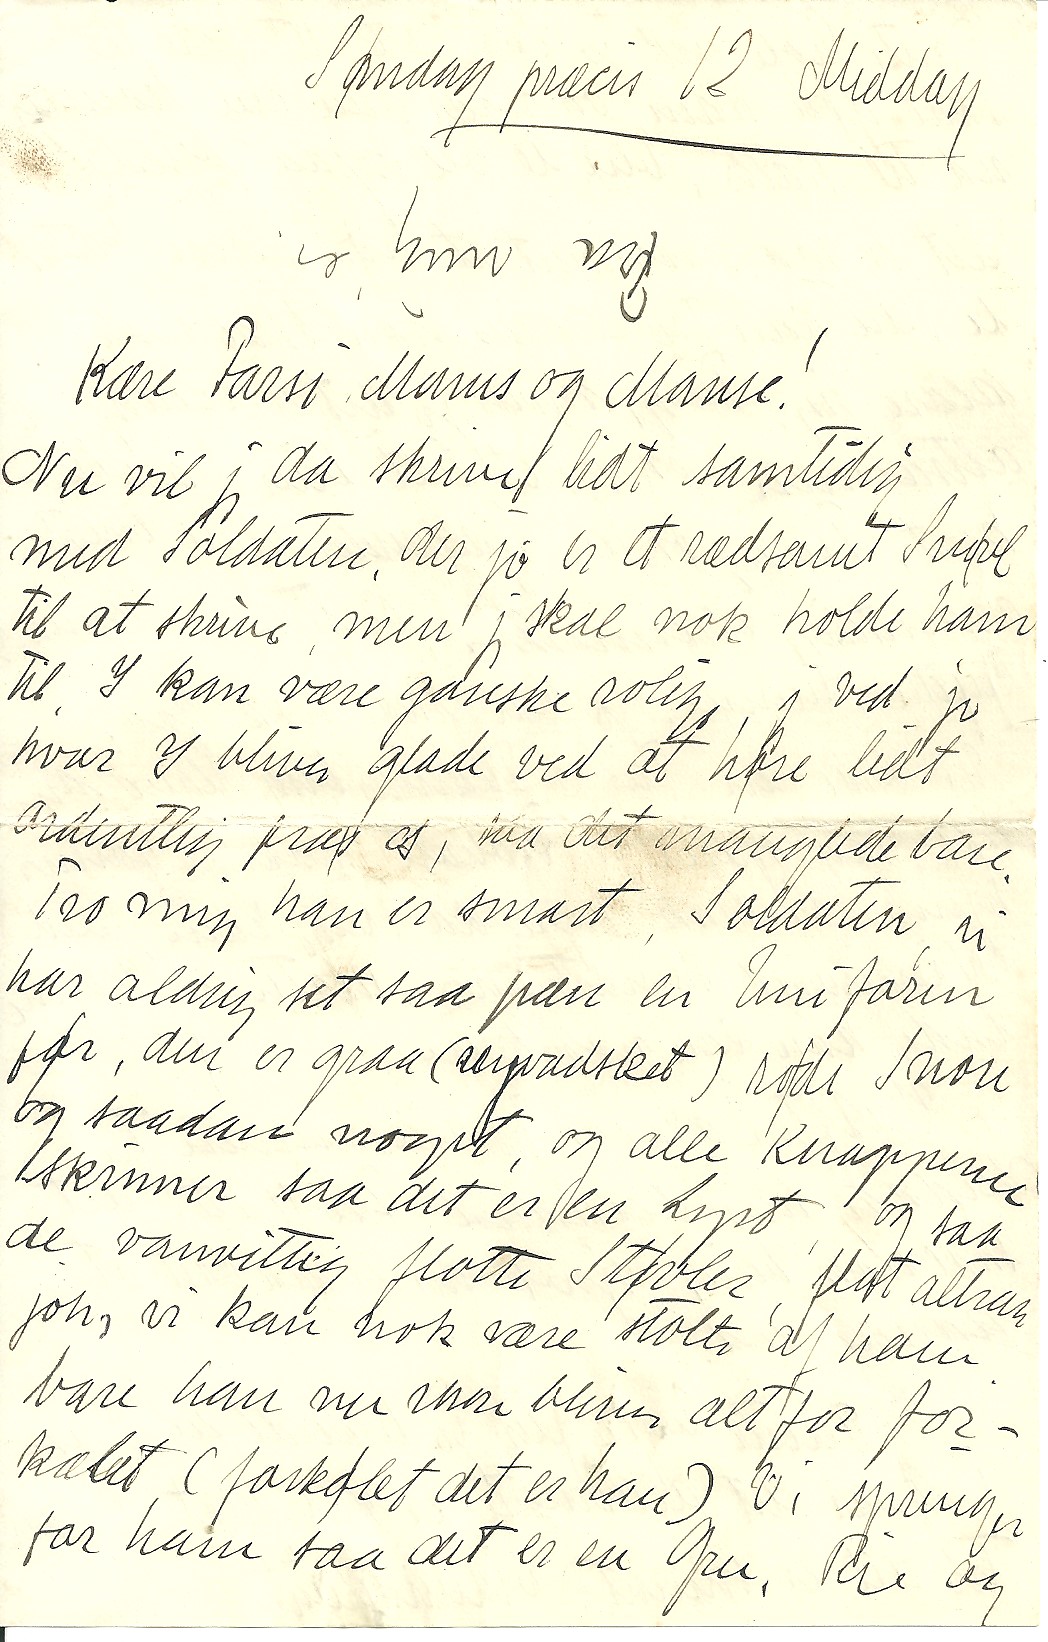 Søndag præcis 12 Middag
Kære Farsi, Moms og Manse!
Nu vil j da skrive lidt samtidig
med Soldaten, der jo er et rædsomt Snøvl
til at skrive, men j skal nok holde ham
til, I kan være ganske rolig, j ved jo
hvor I bliver glade ved at høre lidt
ordentlig fra os, naa det manglede bare.
Tro mig han er smart, Soldaten, vi
har aldrig set saa pæn en Uniform
før, den er graa (uopvadsket) røde Snore
og saadan noget, og alle Knapperne
skinner saa det er en Lyst, og saa
de vanvittig flotte Støvler, flot altsaa
joh, vi kan nok være stolte af ham
bare han nu ikke bliver alt for for-
kælet (forkølet det er han) Vi springer
for ham saa det er en Gru, og